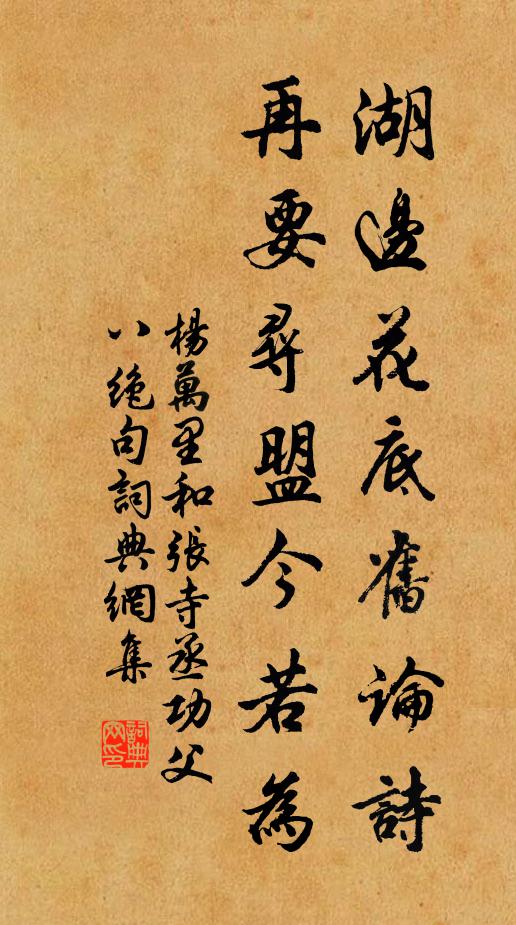 湖邊花底舊論詩
再要尋盟今若為
楊萬里和張寺丞功父
八絶句詞典網集
詞典網印